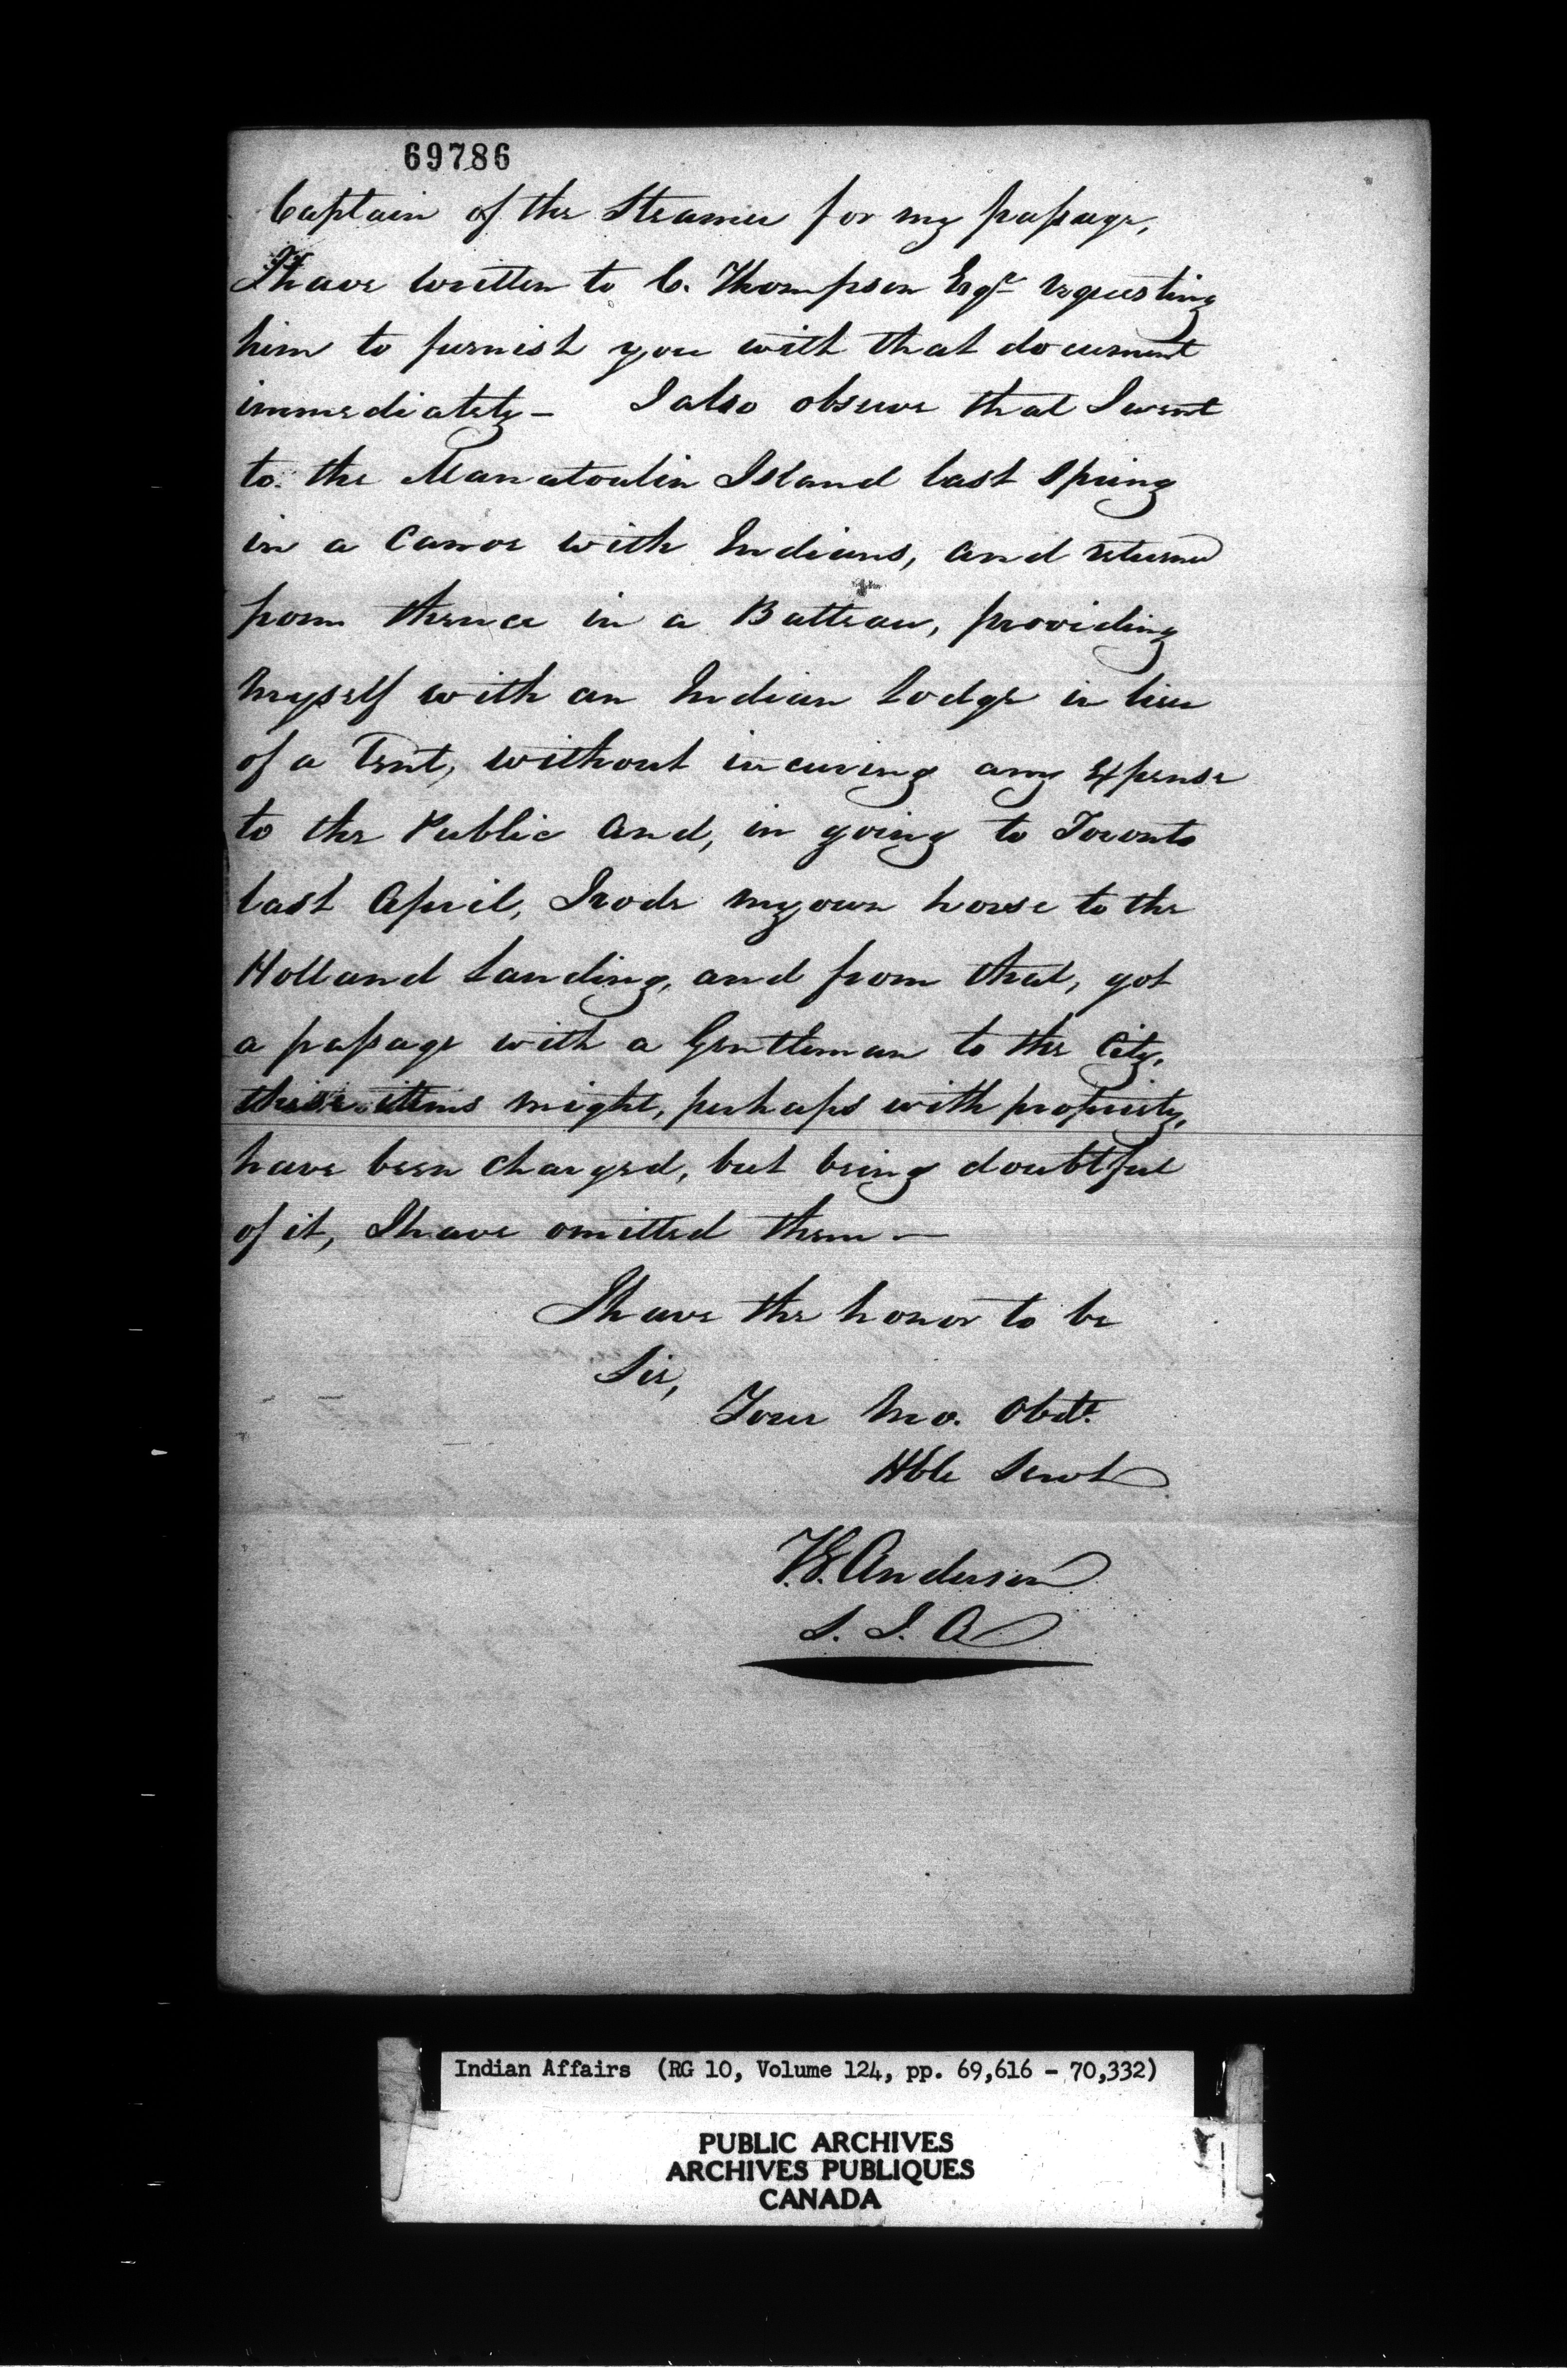 69786
Captain of the Steamer for my passage,
I have written to C. Thompson Esqr requesting
him to furnish you with that document
immediately – I also observe that I went
to the Manatoulin Island last spring
in a Canoe with Indians, and returned
from thence in a Batteau, providing
myself with an Indian Lodge in lieu
of a Tent, without incuring any Expense
to the Public and, in going to Toronto
last April, I rode my own horse to the
Holland Landing, and from that, got
a passage with a Gentleman to the City,
these items might, perhaps with propriety,
have been charged, but being doubtful
of it, I have omitted them –
I have the honor to be
Sir,
Your Mo. Obdt.
Hble Servt
T.G. Anderson
S. I. A
Indian Affairs (RG 10, Volume 124, pp. 69,616 - 70,332)
PUBLIC ARCHIVES
ARCHIVES PUBLIQUES
CANADA